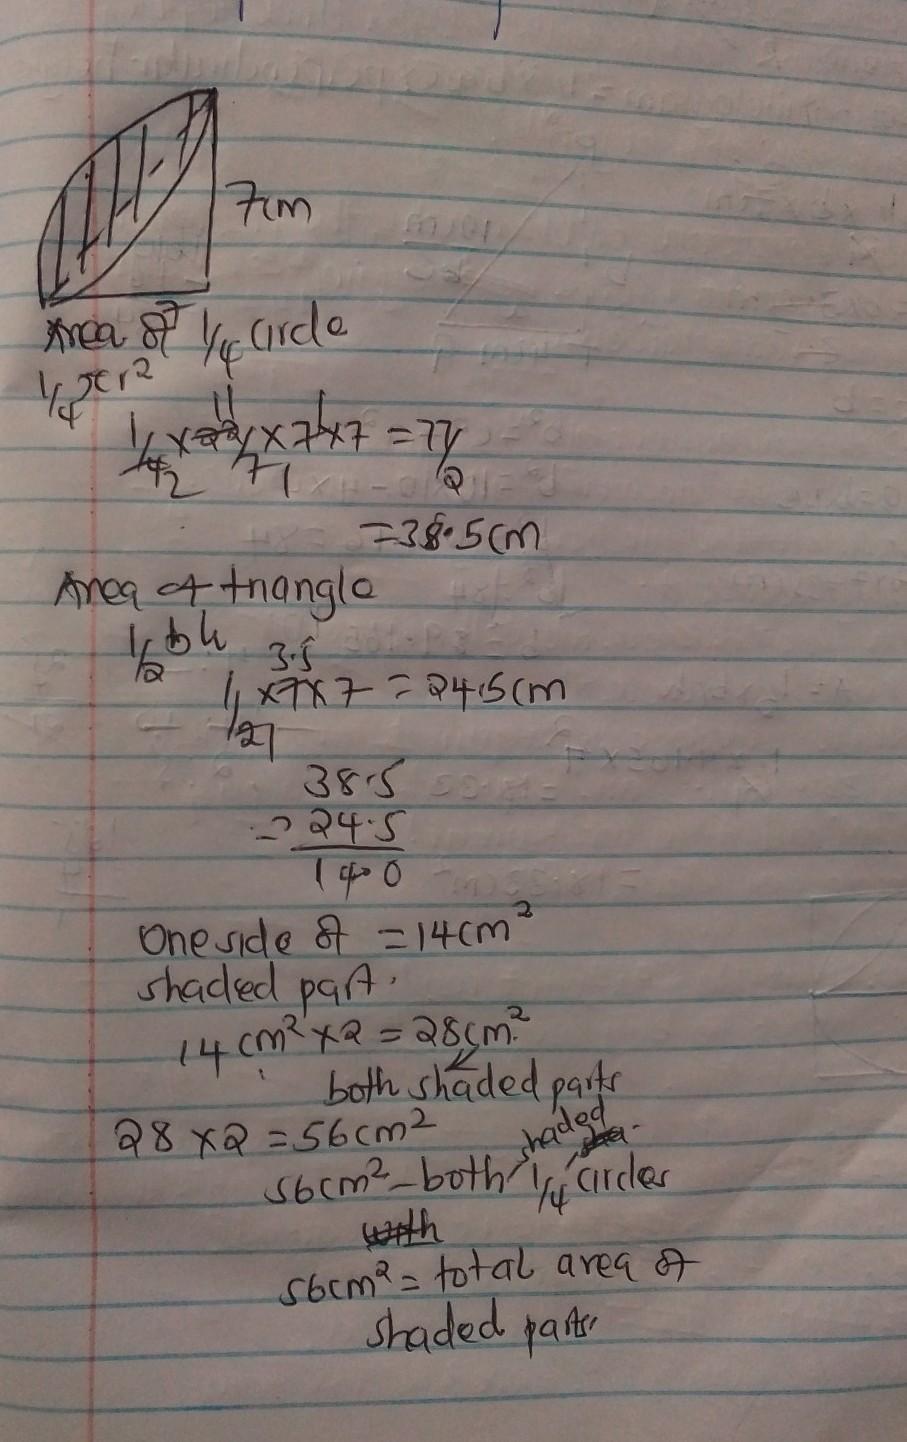 7cm
Area of 1/4 circle
1/4 πr²
1/4 × 22/7 × 7 × 7 = 77/2
11 1
2 1
= 38.5cm
Area of triangle
1/2 bh
3.5
1/2 × 7 × 7 = 24.5cm
1
38.5
- 24.5
14.0
One side of = 14cm²
shaded part.
14cm² × 2 = 28cm²
both shaded parts
28 × 2 = 56cm²
shaded
56cm² - both 1/4 circles
with
56cm² = total area of
shaded parts